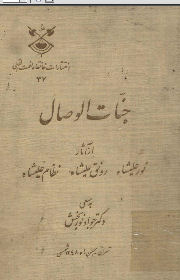 انتشارات خانقاه نعمت اللهی
۳۷
جنّات الوصال
از آثار
نورعلیشاه رونق علیشاه نظام علیشاه
بسعی
دکتر جواد نوربخش